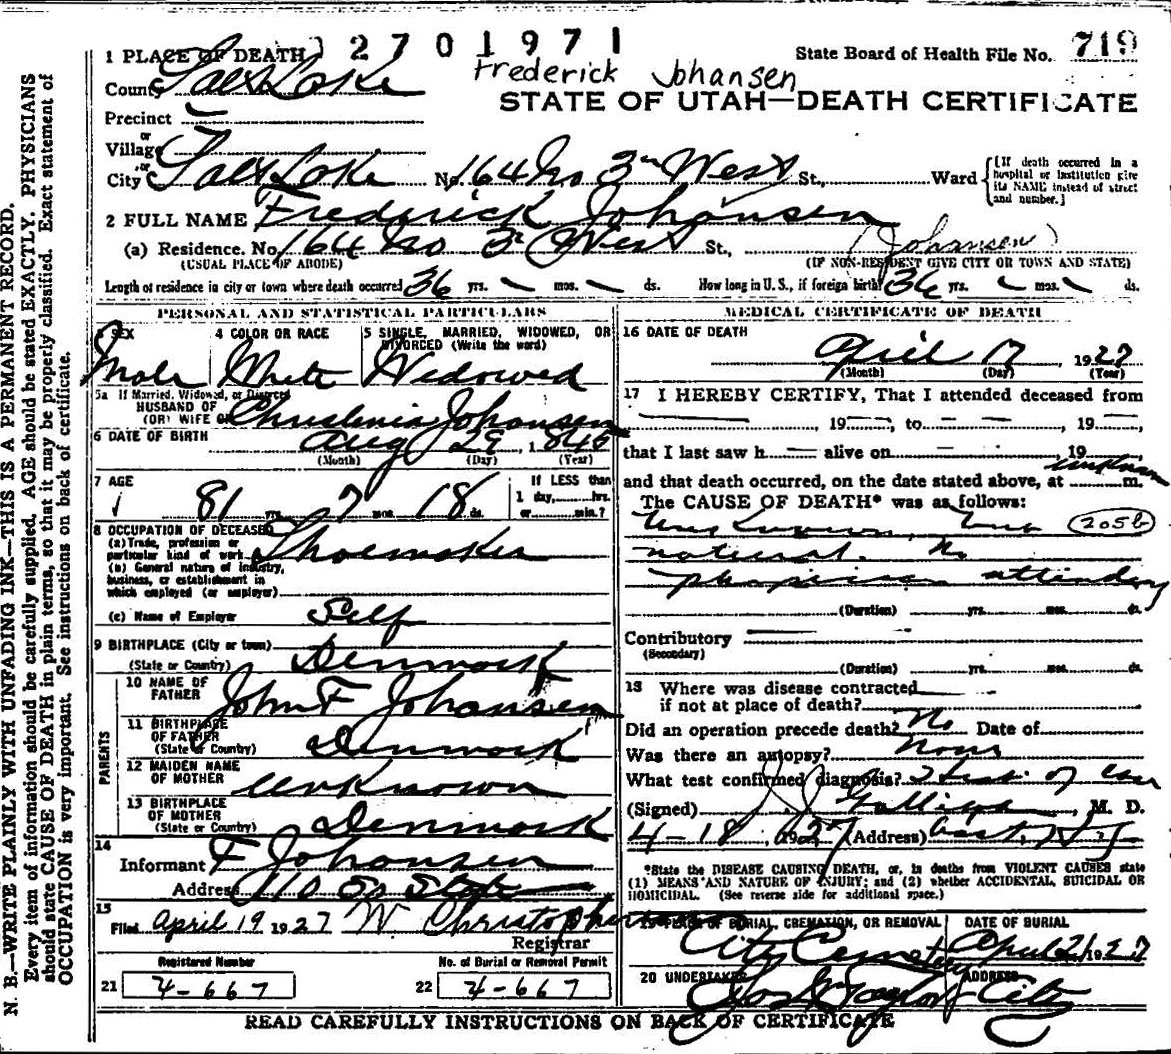 N. B.—WRITE PLAINLY WITH UNFADING INK—THIS IS A PERMANENT RECORD.
Every item of information should be carefully supplied. AGE should be stated EXACTLY. PHYSICIANS
should state CAUSE OF DEATH in plain terms, so that it may be properly classified. Exact statement of
OCCUPATION is very important. See instructions on back of certificate.
2701971
1 PLACE OF DEATH
State Board of Health File No. 719
Frederick Johansen
County Salt Lake
STATE OF UTAH—DEATH CERTIFICATE
Precinct
or
Village
or
City Salt Lake No. 164 No 3rd West St., Ward [If death occurred in a hospital or institution give its NAME instead of street and number.]
2 FULL NAME Frederick Johansen
(a) Residence. No. 164 No 3rd West St., (Johansen)
(USUAL PLACE OF ABODE) (IF NON-RESIDENT GIVE CITY OR TOWN AND STATE)
Length of residence in city or town where death occurred 36 yrs. – mos. – ds. How long in U. S., if foreign birth? 36 yrs. – mos. – ds.
PERSONAL AND STATISTICAL PARTICULARS
3 SEX 4 COLOR OR RACE 5 SINGLE, MARRIED, WIDOWED, OR DIVORCED (Write the word)
Male White Widowed
5a If Married, Widowed, or Divorced
HUSBAND OF
(OR) WIFE OF Christenia Johansen
6 DATE OF BIRTH Aug 29, 1845
(Month) (Day) (Year)
7 AGE If LESS than
81 yrs. 7 mos. 18 ds. 1 day, hrs.
or min.?
8 OCCUPATION OF DECEASED
(a) Trade, profession or
particular kind of work Shoemaker
(b) General nature of industry,
business, or establishment in
which employed (or employer)
(c) Name of Employer Self
9 BIRTHPLACE (City or town)
(State or Country) Denmark
PARENTS
10 NAME OF
FATHER John F Johansen
11 BIRTHPLACE
OF FATHER
(State or Country) Denmark
12 MAIDEN NAME
OF MOTHER Unknown
13 BIRTHPLACE
OF MOTHER
(State or Country) Denmark
14
Informant F Johansen
Address 110 So State
15
Filed April 19 1927 W Christopherson
Registrar
Registered Number No. of Burial or Removal Permit
21 4-667 22 4-667
MEDICAL CERTIFICATE OF DEATH
16 DATE OF DEATH
April 17 1927
(Month) (Day) (Year)
17 I HEREBY CERTIFY, That I attended deceased from
— 19 —, to — — 19 —,
that I last saw h — alive on — 19
unknown
and that death occurred, on the date stated above, at m.
The CAUSE OF DEATH* was as follows:
Unknown, 205b
natural. No
physician attending
(Duration) yrs. mos. ds.
Contributory
(Secondary)
(Duration) yrs. mos. ds.
18 Where was disease contracted
if not at place of death?
Did an operation precede death? No Date of
Was there an autopsy? None
What test confirmed diagnosis? of
(Signed) , M. D.
4-18, 1927 (Address)
*State the DISEASE CAUSING DEATH, or, in deaths from VIOLENT CAUSES state
(1) MEANS AND NATURE OF INJURY; and (2) whether ACCIDENTAL, SUICIDAL OR
HOMICIDAL. (See reverse side for additional space.)
19 PLACE OF BURIAL, CREMATION, OR REMOVAL DATE OF BURIAL
City Cemetery April 21 1927
20 UNDERTAKER ADDRESS
Jos Taylor City
READ CAREFULLY INSTRUCTIONS ON BACK OF CERTIFICATE